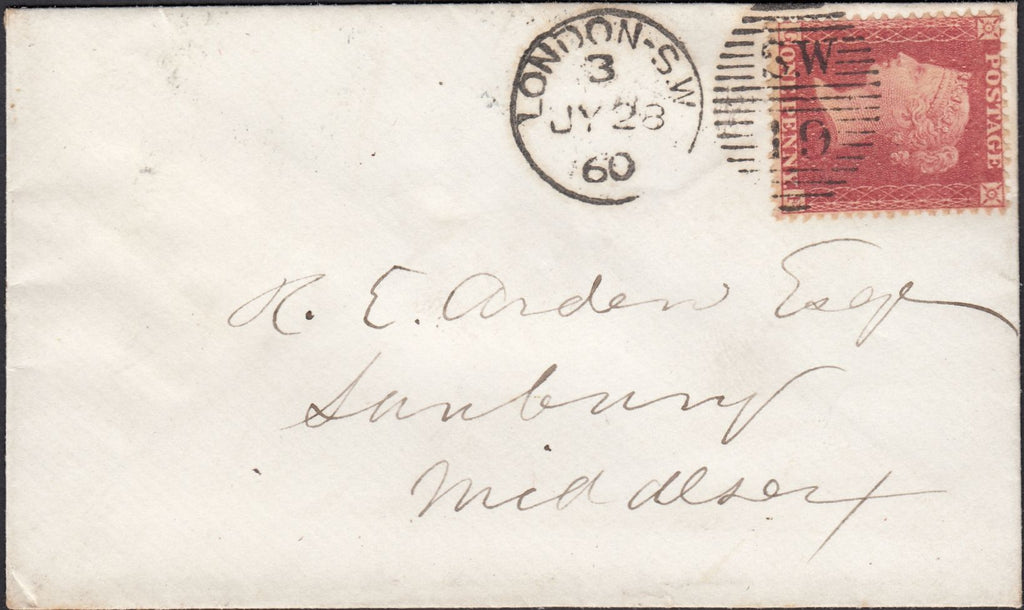 LONDON-S.W
3
JY 28
60
S.W
19
POSTAGE
ONE PENNY
R. E. Arden Esqr
Sunbury
Middlesex